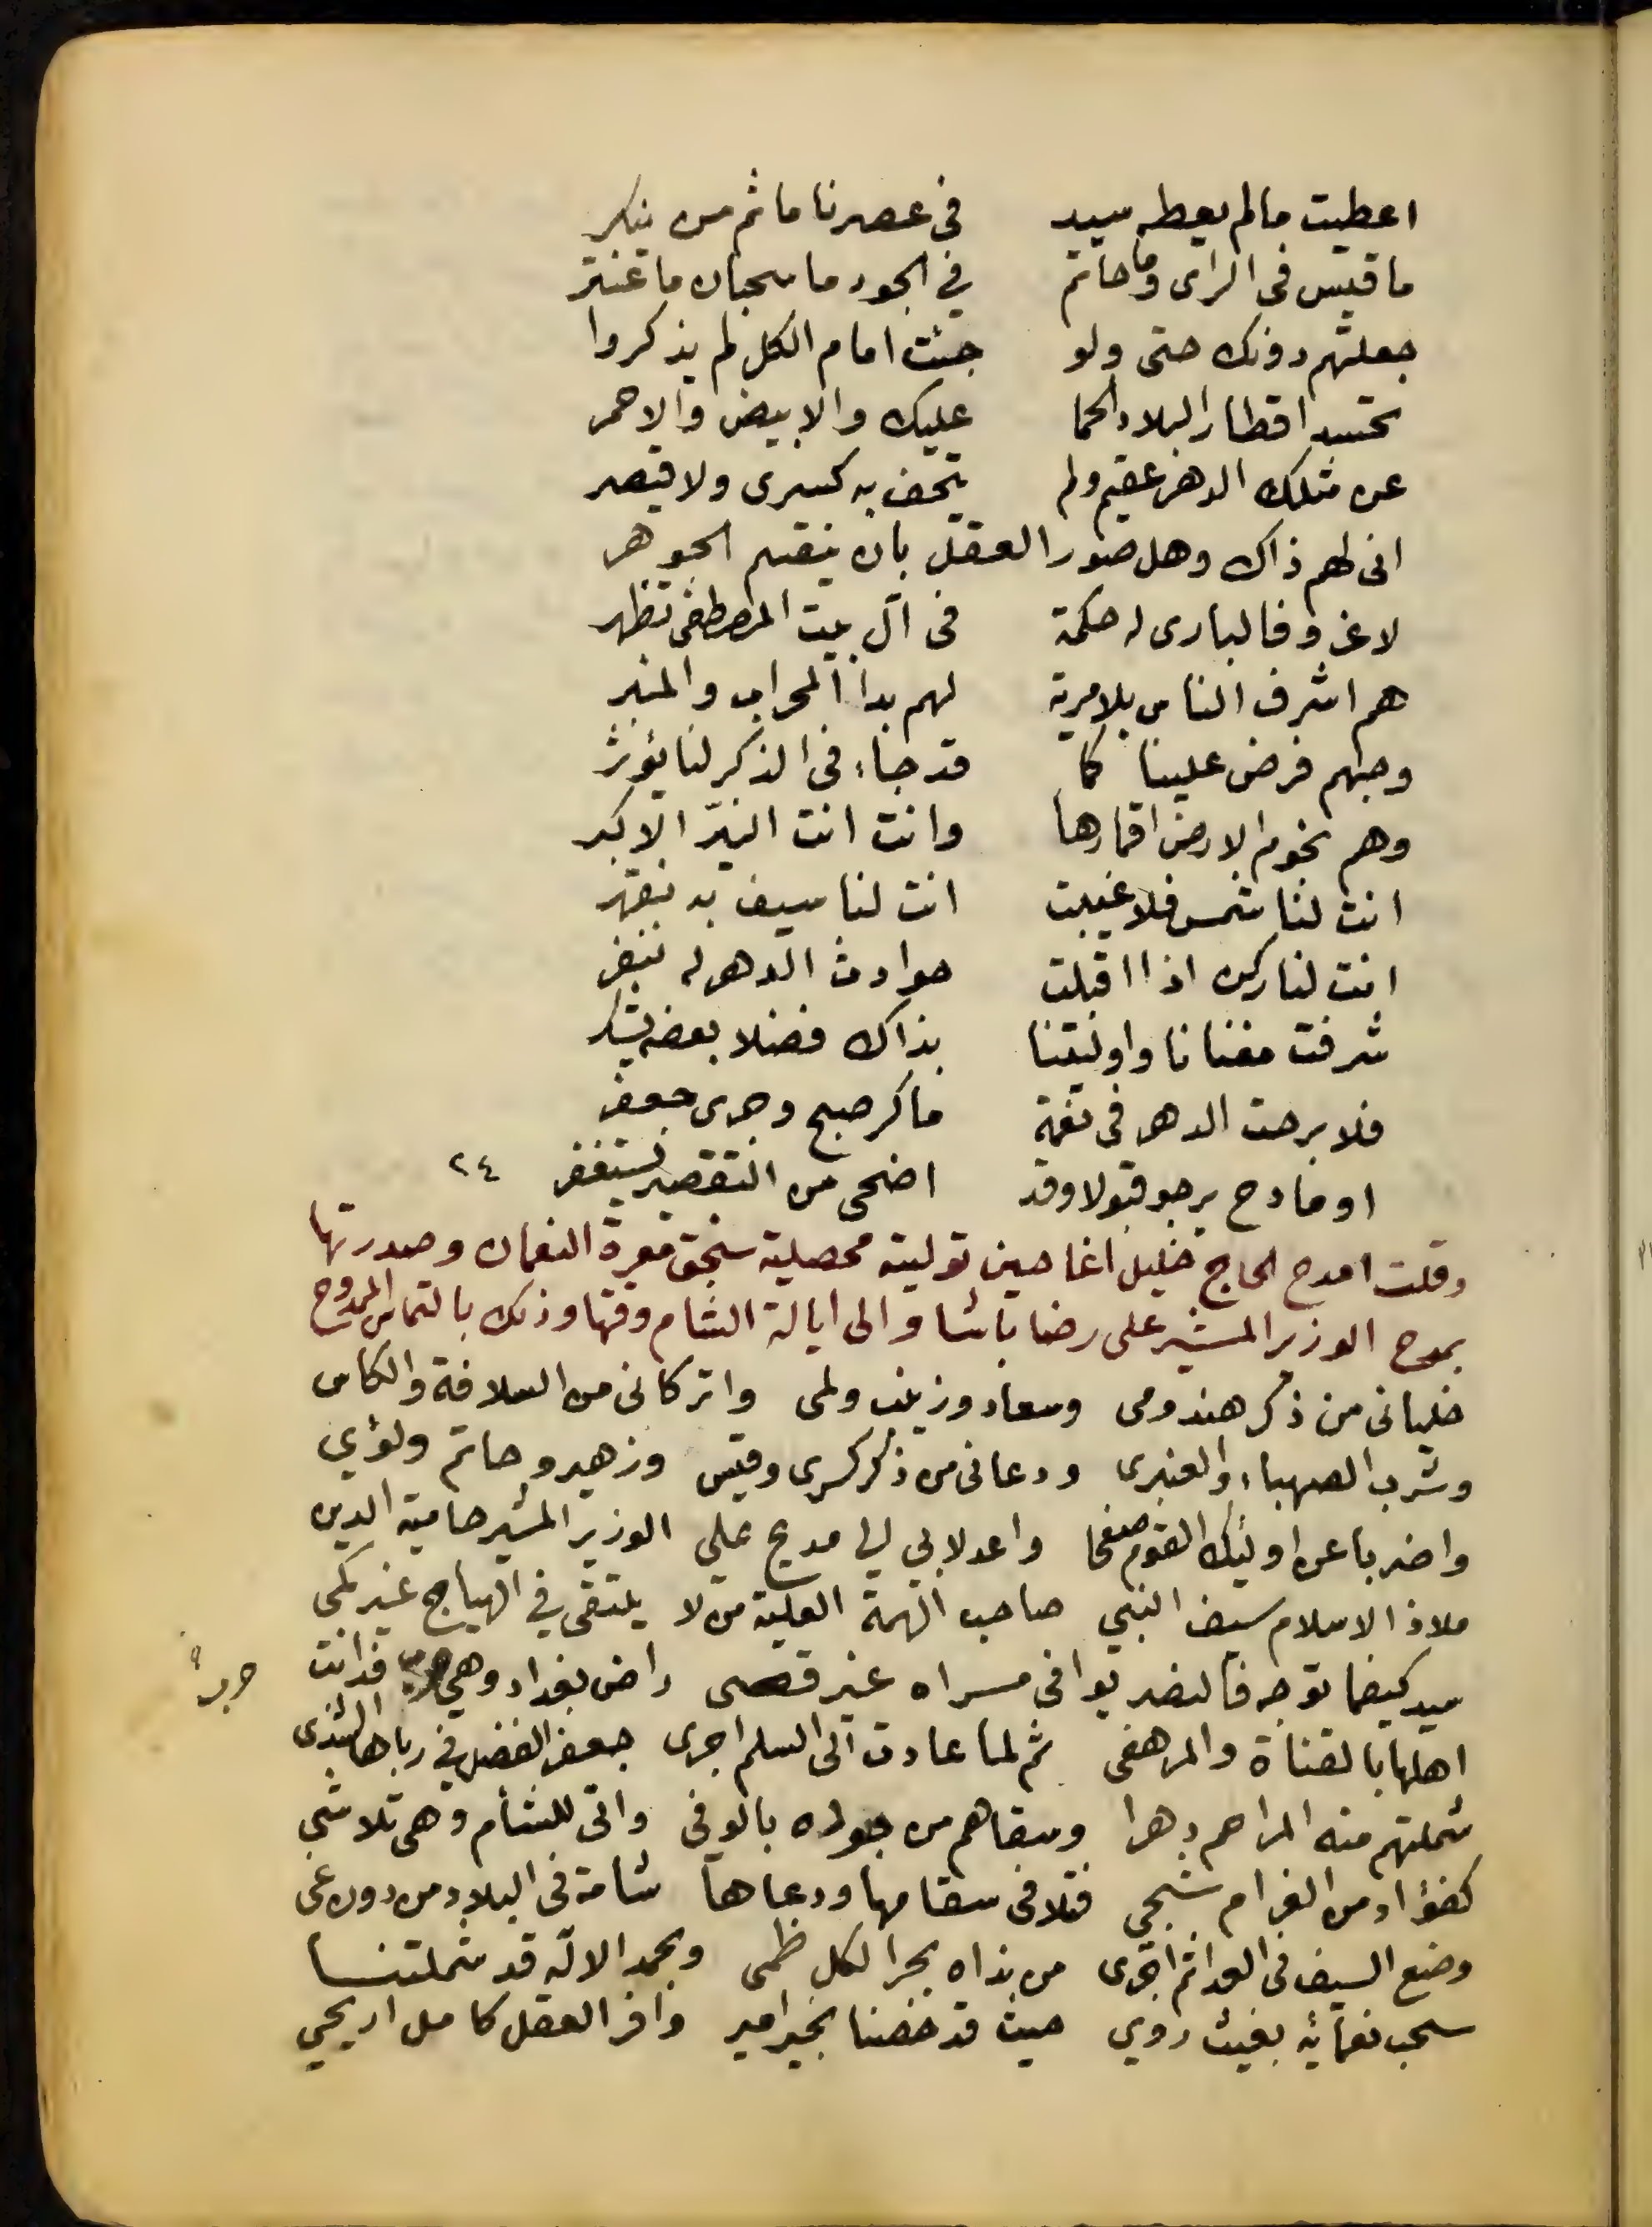 اعطيت مالم يعطه سيد في عصرنا ما ثم من ينكر
ما قيس في الراى وما حاتم في الجود ما سحبان ما عنتر
جعلتهم دونك حتى ولو جئت امام الكل لم يذكروا
تحسد اقطار البلاد الحما عليك والابيض والاحمر
عن مثلك الدهر عقيم ولم يتحف به كسرى ولا قيصر
انى لهم ذاك وهل صور العقل بان ينقسم الجوهر
لا غرو فالبارى له حكمة في آل بيت المصطفى تظهر
هم اشرف الناس بلا مرية لهم بدا المحراب والمنبر
وحبهم فرض علينا كما قد جاء في الذكر لنا يؤثر
وهم نجوم الارض اقمارها وانت انت النيّر الاكبر
انت لنا شمس فلا غيبت انت لنا سيف به نقهر
انت لنا ركن اذا اقبلت حوادث الدهر له ننفر
شرفت مغنانا واوليتنا بذاك فضلا بعضه يشكر
فلا برحت الدهر في نعمة ما كر صبح وجرى جعفر
او مادح يرجو قبولا وقد اضحى من التقصير يستغفر ٢٤
وقلت امدح الحاج خليل اغا حين توليته محصلية سنجق معرة النعمان وصدرتها
بمدح الوزير المشير على رضا باشا والى ايالة الشام وقتها وذلك بالتماس الممدوح
خليانى من ذكر هند ومى وسعاد وزينب ولمى واتركانى من السلافة والكاس
وشرب الصهباء والعنبرى ودعانى من ذكر كسرى وقيس وزهير وحاتم ولؤي
واضربا عن اوليك القوم صفحا واعدلا بي لي مديح علي الوزير المشير حامية الدين
ملاذ الاسلام سيف النبي صاحب الهمة العلية من لا يلتقى في الهياج غير كمى
سيد كيفما توجه فالنصر يوافى مسراه غير قصى راض بغداد وهي حرب فدانت
حرب
اهلها بالقناة والمرهفى ثم لما عادت الى السلم اجرى جعفر الفضل في رباها الندى
شملتهم منه المراحم دهرا وسقاهم من جوده بالوفى واتى للشام وهى تلاشي
كفؤاد من الغرام شجي فتلافى سقامها ودعاها شامة في البلاد من دون غى
وضع السيف في العدا ثم اجرى من نداه بحرا لكل ظمى وبحمد الاله قد شملتنا
سحب نعمائه بغيث روي حيث قد خصنا بخير امير وافر العقل كامل اريحي